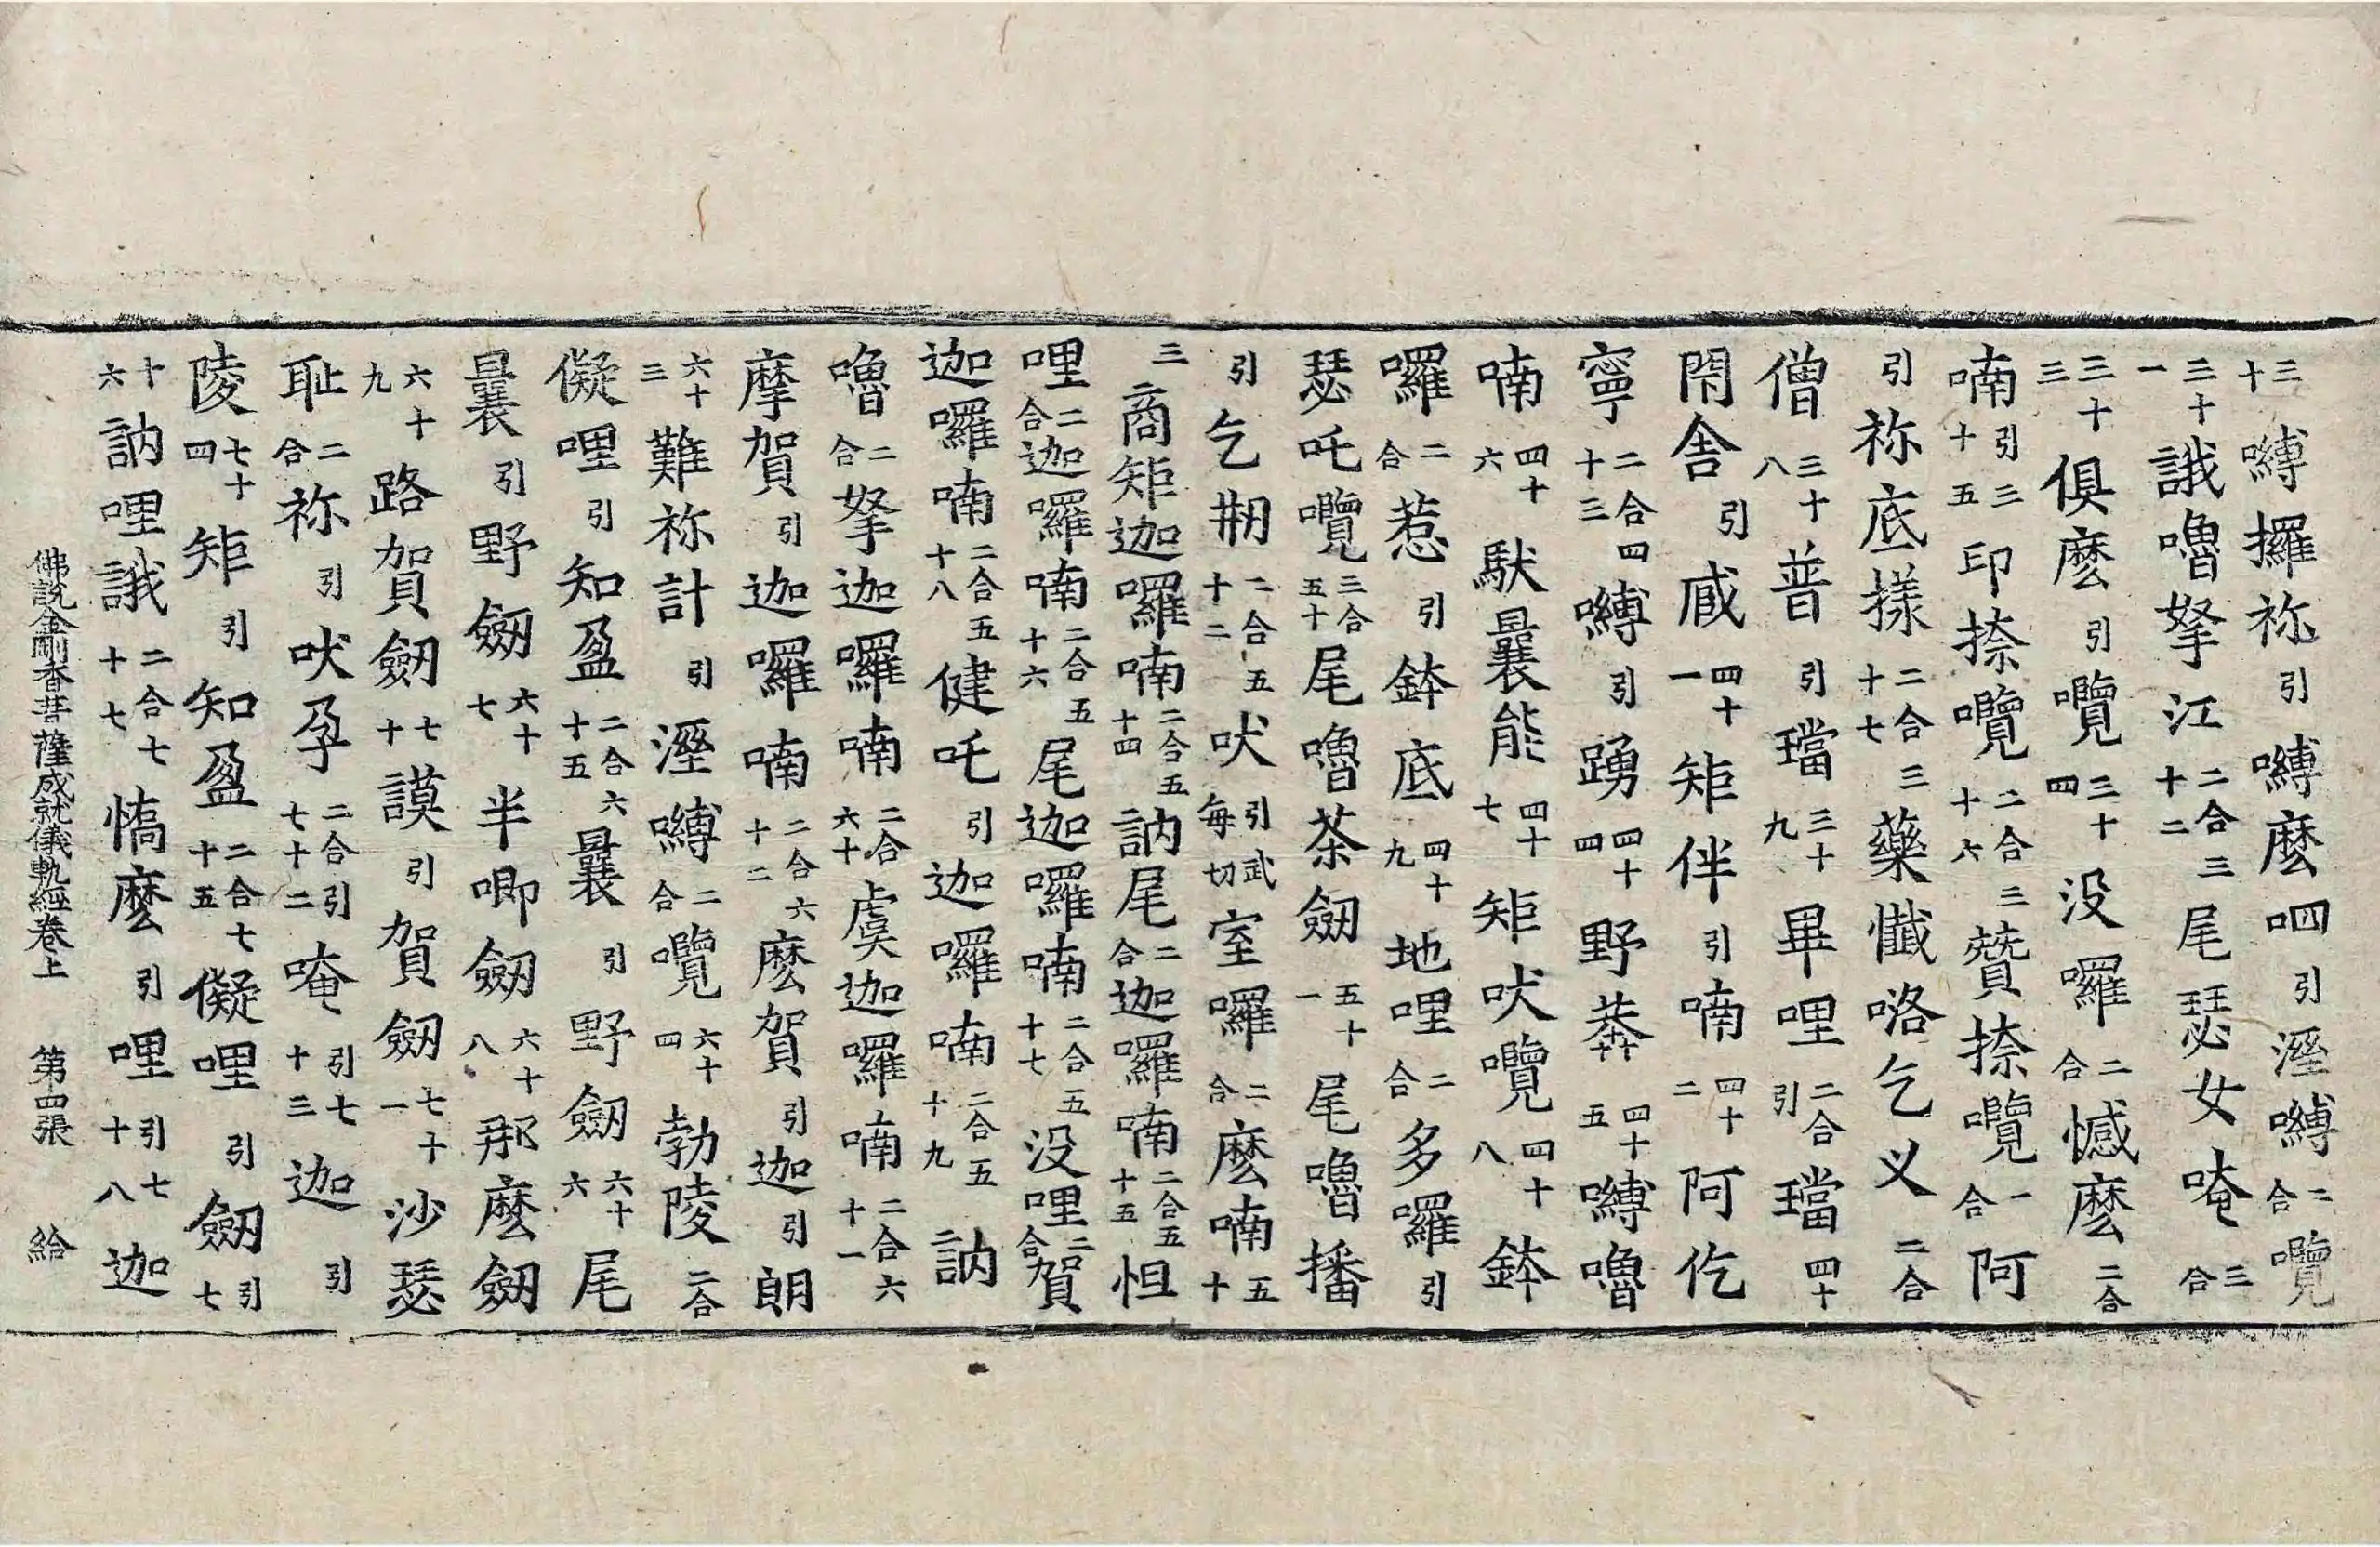 三十嚩攞祢引嚩麽呬引溼嚩二合囕
三十一誐嚕拏江二合三十二尾瑟女唵三合
三十三俱麽引囕三十四没囉二合憾麽二合
喃引三十五印捺囕二合三十六贊捺囕二合阿
引祢底㨾二合三十七藥懺咯乞义二合
僧三十八普引璫三十九畢哩二合引璫四十
閇舍引𢻹四十一矩伴引喃四十二阿仡
寧二合四十三嚩引踴四十四野莾四十五嚩嚕
喃四十六馱曩能四十七矩吠囕四十八鉢
囉二合惹引鉢底四十九地哩二合多囉引
瑟吒囕三合五十尾嚕茶劒五十一尾嚕播
引乞剏二合五十二吠引武每切室囉二合麽喃五十
三商矩迦囉喃二合五十四訥尾二合迦囉喃二合五十五怛
哩二合迦囉喃二合五十六尾迦囉喃二合五十七没哩二合賀
迦囉喃二合五十八健吒引迦囉喃二合五十九訥
嚕二合拏迦囉喃二合六十虞迦囉喃二合六十一
摩賀引迦囉喃二合六十二麽賀引迦引朗
六十三難祢計引溼嚩二合囕六十四勃陵二合
儗哩引知盈二合六十五曩引野劒六十六尾
曩引野劒六十七半唧劒六十八那麽劒
六十九路賀劒七十謨引賀劒七十一沙瑟
耻二合祢引吠孕二合引七十二唵引七十三迦引
陵七十四矩引知盈二合七十五儗哩引劒引七
十六訥哩誐二合七十七憍麽引哩引七十八迦
佛說金剛香菩薩成就儀軌經卷上 第四張 給